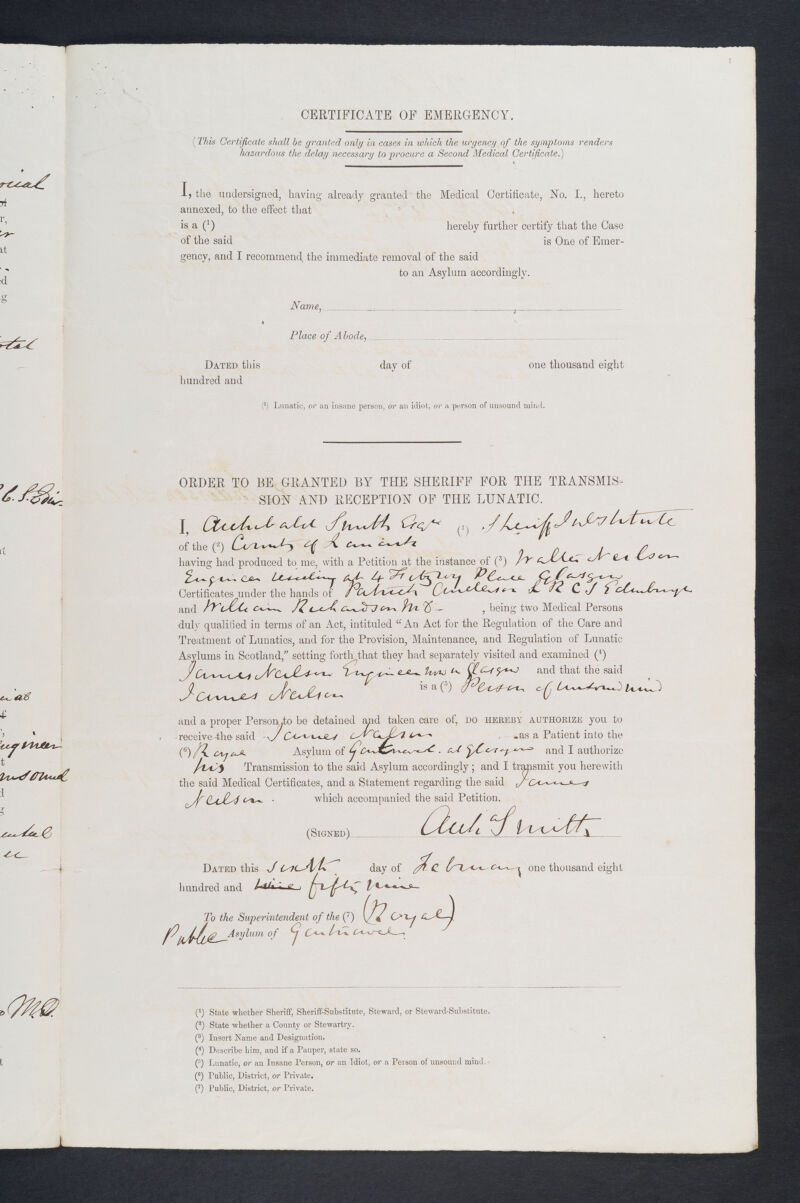 CERTIFICATE OF EMERGENCY.
(This Certificate shall be granted only in cases in which the urgency of the symptoms renders
hazardous the delay necessary to procure a Second Medical Certificate.)
I, the undersigned, having already granted the Medical Certificate, No. I., hereto
annexed, to the effect that
is a (¹) hereby further certify that the Case
of the said is One of Emer-
gency, and I recommend the immediate removal of the said
to an Asylum accordingly.
Name,
Place of Abode,
DATED this day of one thousand eight
hundred and
(¹) Lunatic, or an insane person, or an idiot, or a person of unsound mind.
ORDER TO BE GRANTED BY THE SHERIFF FOR THE TRANSMIS-
SION AND RECEPTION OF THE LUNATIC.
I, Archibald Smith Esqre (¹) Sheriff Substitute
of the (²) County of Lanark
having had produced to me, with a Petition at the instance of (³) Walter Neilson
Engineer residing at 4 Fitzroy Place Glasgow
Certificates under the hands of Patrick Anderson L R C S Edinburgh
and William Richardson M D , being two Medical Persons
duly qualified in terms of an Act, intituled “An Act for the Regulation of the Care and
Treatment of Lunatics, and for the Provision, Maintenance, and Regulation of Lunatic
Asylums in Scotland,” setting forth that they had separately visited and examined (⁴)
James Neilson Engineer now in Glasgow and that the said
James Neilson is a (⁵) Person of unsound mind
and a proper Person to be detained and taken care of, DO HEREBY AUTHORIZE you to
receive the said James Neilson as a Patient into the
(⁶) Royal Asylum of Gartnavel at Glasgow and I authorize
his Transmission to the said Asylum accordingly; and I transmit you herewith
the said Medical Certificates, and a Statement regarding the said James
Neilson which accompanied the said Petition.
(SIGNED) Arch Smith
DATED this Sixth day of February one thousand eight
hundred and fifty nine
To the Superintendent of the (⁷) (Royal)
Public Asylum of Gartnavel
(¹) State whether Sheriff, Sheriff-Substitute, Steward, or Steward-Substitute.
(²) State whether a County or Stewartry.
(³) Insert Name and Designation.
(⁴) Describe him, and if a Pauper, state so.
(⁵) Lunatic, or an Insane Person, or an Idiot, or a Person of unsound mind.
(⁶) Public, District, or Private.
(⁷) Public, District, or Private.